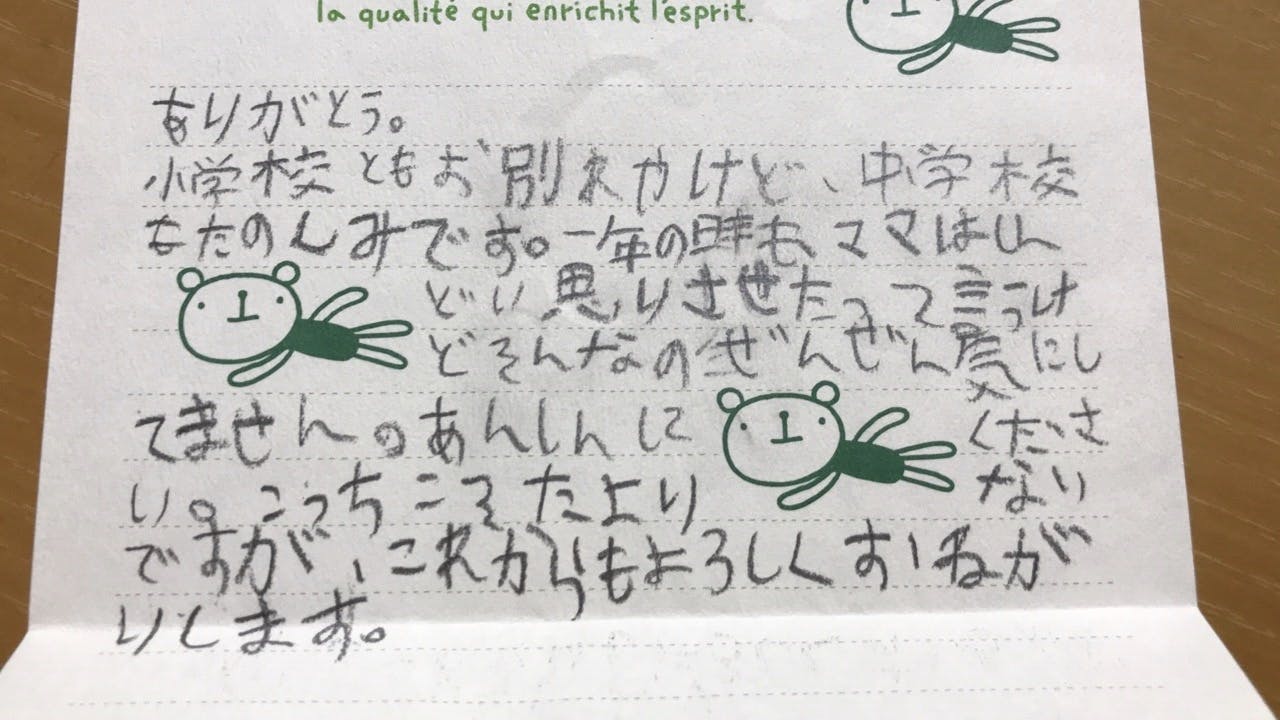 la qualité qui enrichit l'esprit.
ありがとう。
小学校ともお別れやけど、中学校
もたのしみです。一年の時も、ママはしん
どい思いさせたって言うけ
どそんなのぜんぜん気にし
てません。あんしんに くださ
い。こっちこそたより ない
ですが、これからもよろしくおねが
いします。